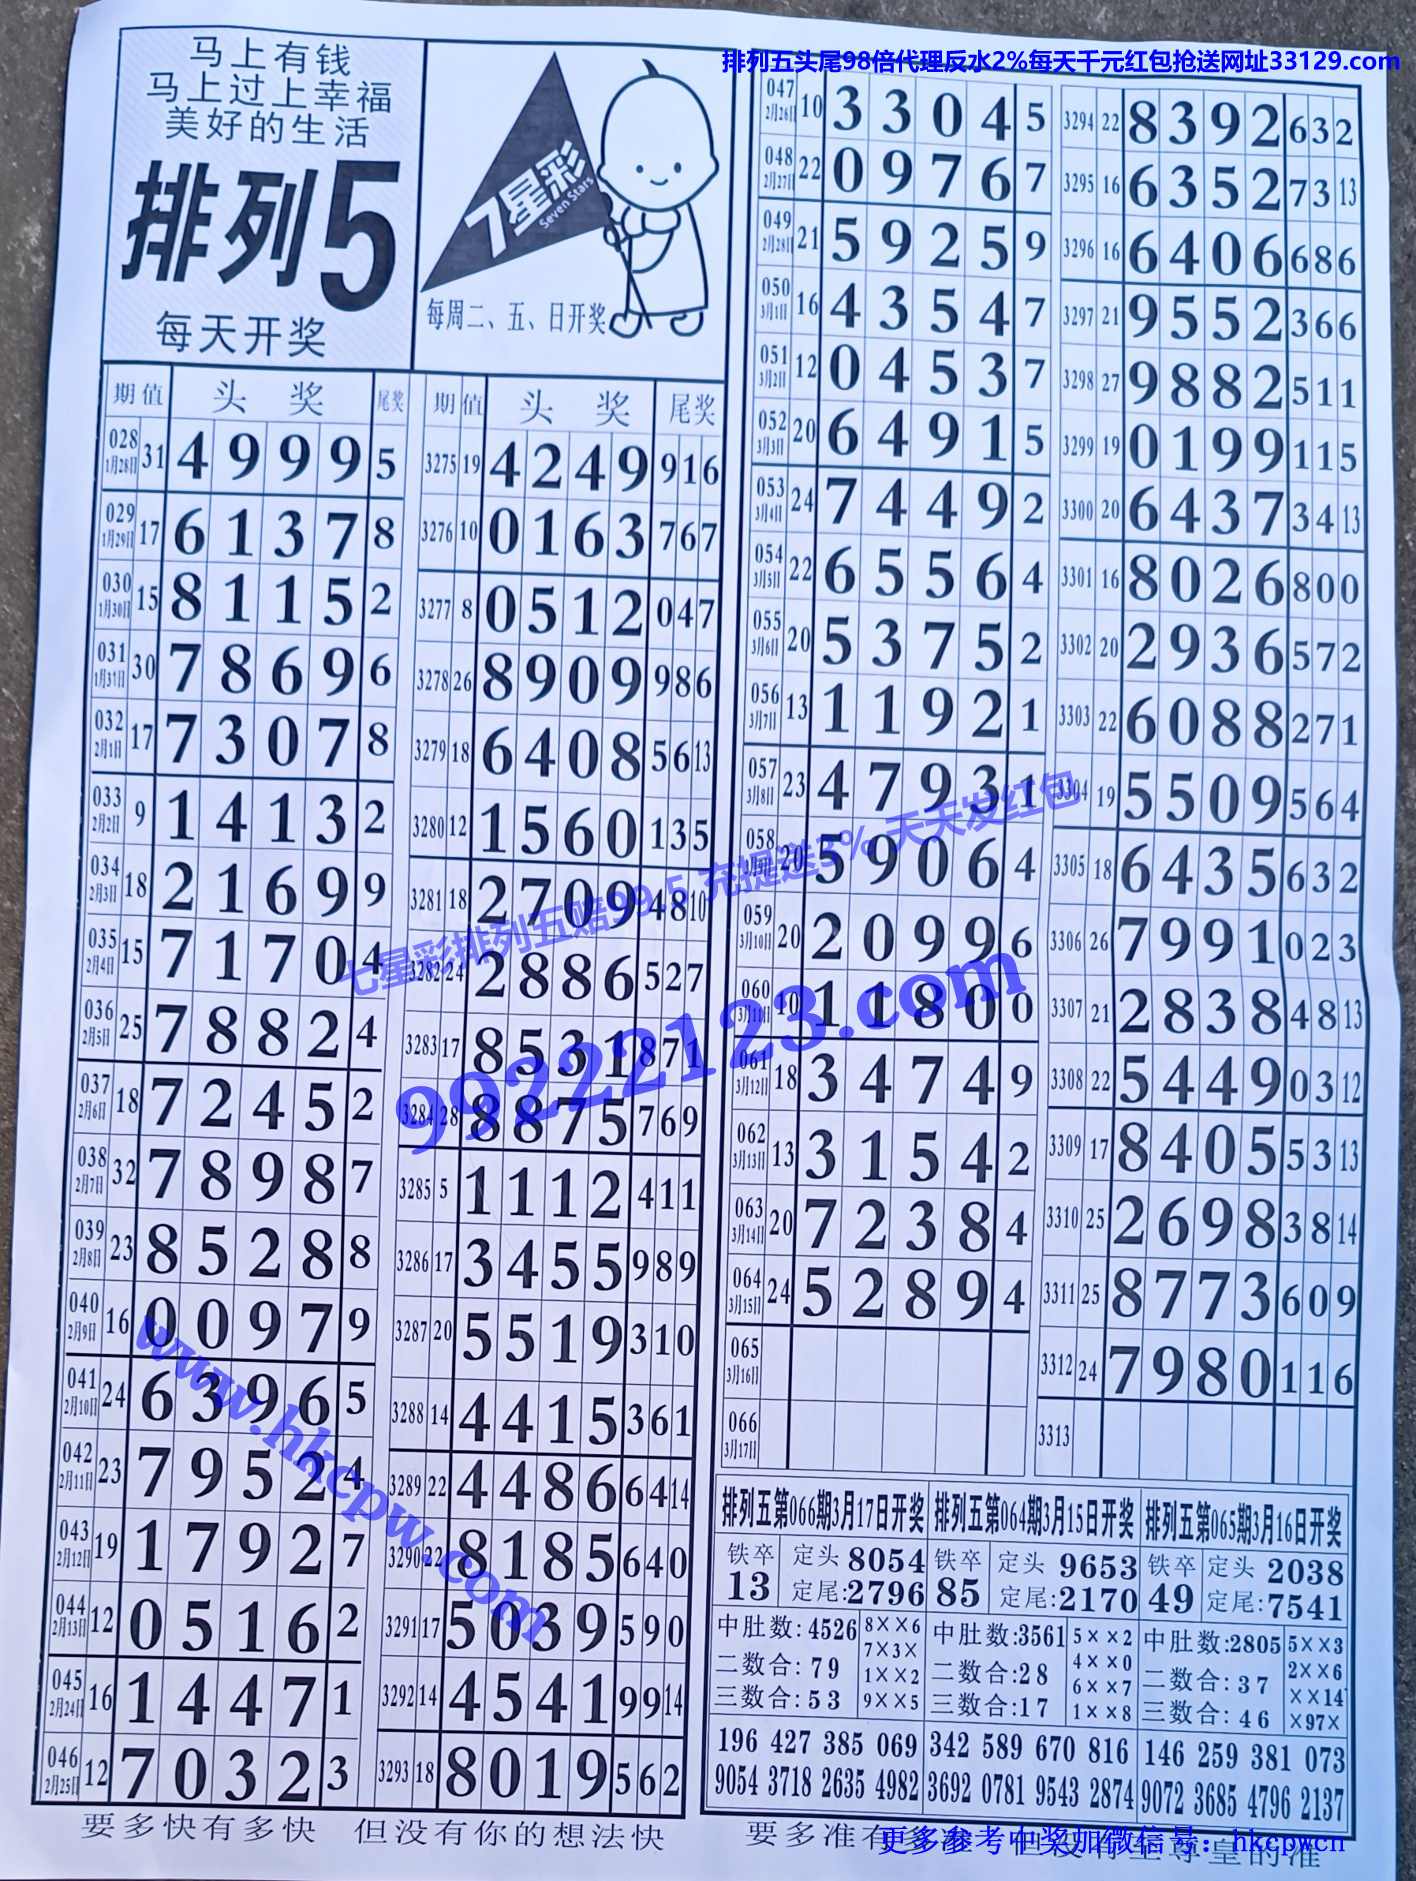 排列五头尾98倍代理反水2%每天千元红包抢送网址33129.com
马上有钱
马上过上幸福
美好的生活
排列5
每天开奖
7星彩
Seven Stars
每周二、五、日开奖
期 值 头 奖 尾奖
028 1月28日 31 4 9 9 9 5
029 1月29日 17 6 1 3 7 8
030 1月30日 15 8 1 1 5 2
031 1月31日 30 7 8 6 9 6
032 2月1日 17 7 3 0 7 8
033 2月2日 9 1 4 1 3 2
034 2月3日 18 2 1 6 9 9
035 2月4日 15 7 1 7 0 4
036 2月5日 25 7 8 8 2 4
037 2月6日 18 7 2 4 5 2
038 2月7日 32 7 8 9 8 7
039 2月8日 23 8 5 2 8 8
040 2月9日 16 0 0 9 7 9
041 2月10日 24 6 3 9 6 5
042 2月11日 23 7 9 5 2 4
043 2月12日 19 1 7 9 2 7
044 2月13日 12 0 5 1 6 2
045 2月24日 16 1 4 4 7 1
046 2月25日 12 7 0 3 2 3
期 值 头 奖 尾奖
3275 19 4 2 4 9 9 1 6
3276 10 0 1 6 3 7 6 7
3277 8 0 5 1 2 0 4 7
3278 26 8 9 0 9 9 8 6
3279 18 6 4 0 8 5 6 13
3280 12 1 5 6 0 1 3 5
3281 18 2 7 0 9 4 8 10
3282 24 2 8 8 6 5 2 7
3283 17 8 5 3 1 8 7 1
3284 28 8 8 7 5 7 6 9
3285 5 1 1 1 2 4 1 1
3286 17 3 4 5 5 9 8 9
3287 20 5 5 1 9 3 1 0
3288 14 4 4 1 5 3 6 1
3289 22 4 4 8 6 6 4 14
3290 22 8 1 8 5 6 4 0
3291 17 5 0 3 9 5 9 0
3292 14 4 5 4 1 9 9 14
3293 18 8 0 1 9 5 6 2
047 2月26日 10 3 3 0 4 5
048 2月27日 22 0 9 7 6 7
049 2月28日 21 5 9 2 5 9
050 3月1日 16 4 3 5 4 7
051 3月2日 12 0 4 5 3 7
052 3月3日 20 6 4 9 1 5
053 3月4日 24 7 4 4 9 2
054 3月5日 22 6 5 5 6 4
055 3月6日 20 5 3 7 5 2
056 3月7日 13 1 1 9 2 1
057 3月8日 23 4 7 9 3 1
058 20 5 9 0 6 4
059 3月10日 20 2 0 9 9 6
060 3月11日 10 1 1 8 0 0
061 3月12日 18 3 4 7 4 9
062 3月13日 13 3 1 5 4 2
063 3月14日 20 7 2 3 8 4
064 3月15日 24 5 2 8 9 4
065 3月16日
066 3月17日
3294 22 8 3 9 2 6 3 2
3295 16 6 3 5 2 7 3 13
3296 16 6 4 0 6 6 8 6
3297 21 9 5 5 2 3 6 6
3298 27 9 8 8 2 5 1 1
3299 19 0 1 9 9 1 1 5
3300 20 6 4 3 7 3 4 13
3301 16 8 0 2 6 8 0 0
3302 20 2 9 3 6 5 7 2
3303 22 6 0 8 8 2 7 1
3304 19 5 5 0 9 5 6 4
3305 18 6 4 3 5 6 3 2
3306 26 7 9 9 1 0 2 3
3307 21 2 8 3 8 4 8 13
3308 22 5 4 4 9 0 3 12
3309 17 8 4 0 5 5 3 13
3310 25 2 6 9 8 3 8 14
3311 25 8 7 7 3 6 0 9
3312 24 7 9 8 0 1 1 6
3313
排列五第066期3月17日开奖
铁卒 13 定头 8054
定尾:2796
中肚数:4526
二数合:79
三数合:53
8××6
7×3×
1××2
9××5
196 427 385 069
9054 3718 2635 4982
排列五第064期3月15日开奖
铁卒 85 定头 9653
定尾:2170
中肚数:3561
二数合:28
三数合:17
5××2
4××0
6××7
1××8
342 589 670 816
3692 0781 9543 2874
排列五第065期3月16日开奖
铁卒 49 定头 2038
定尾:7541
中肚数:2805
二数合:37
三数合:46
5××3
2××6
××14
×97×
146 259 381 073
9072 3685 4796 2137
要多快有多快 但没有你的想法快
要多准有多准 但没有至尊皇的准
更多参考中奖加微信号：hkcpwcn
七星彩排列五赔99.5 充提送3% 天天发红包
99222123.com
www.hkcpw.com